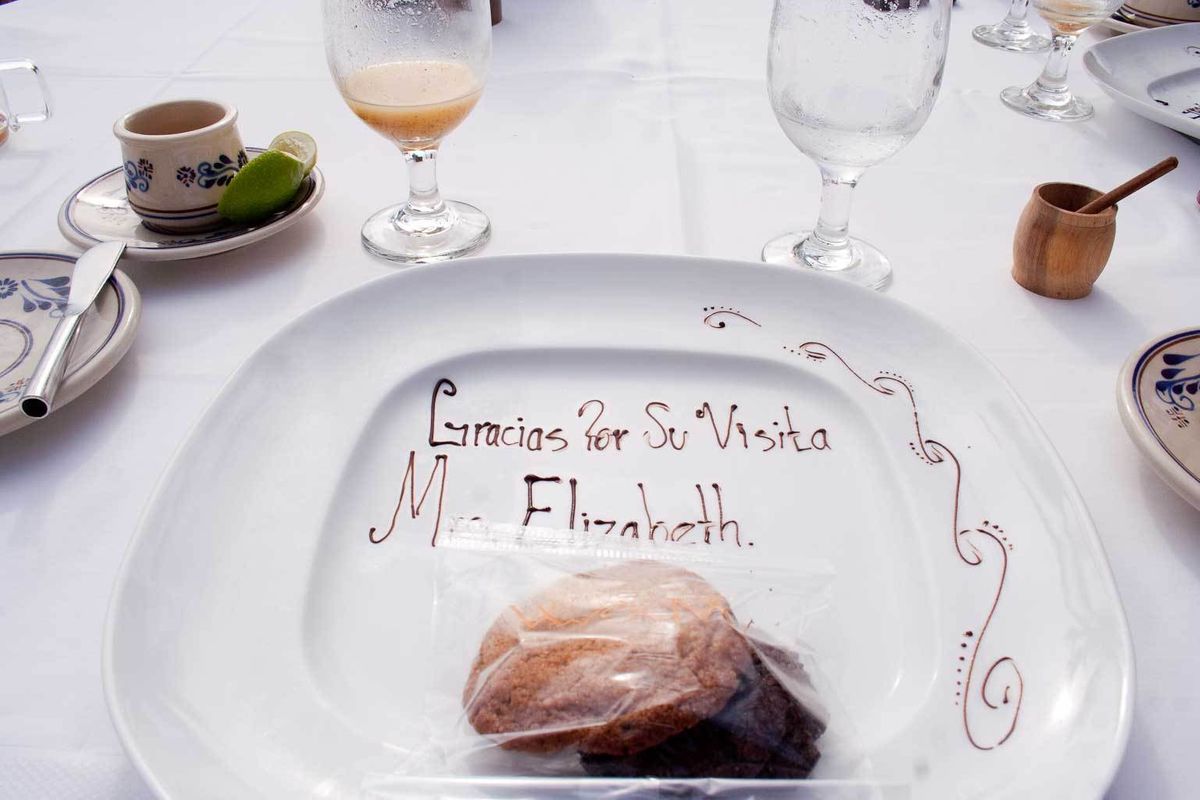 Gracias Por Su Visita
Elizabeth.